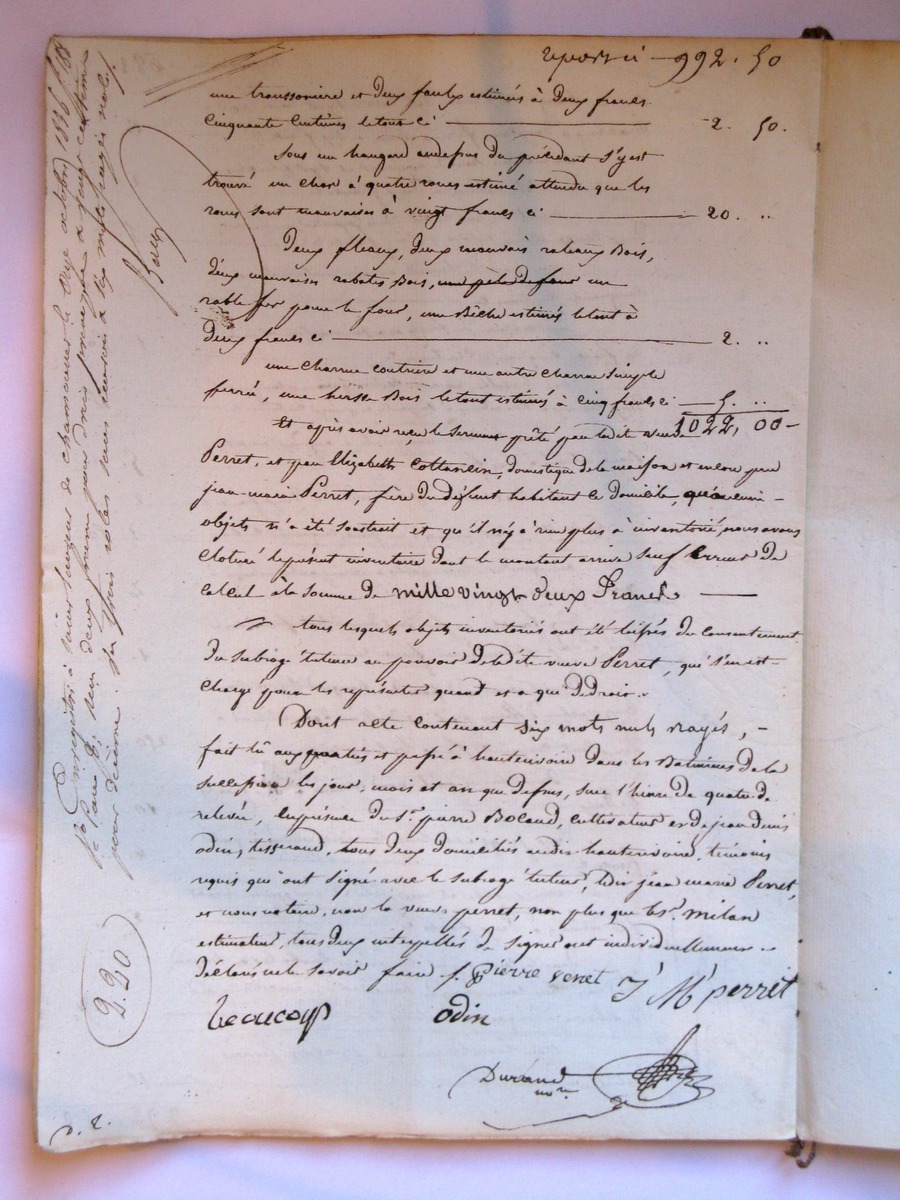 report ci 992. 50
une troussonière et deux faulx estimées à deux francs
cinquante centimes le tout ci 2. 50.
Sous un hangard au dessus du précédant s'y est
trouvé un char à quatre roues estimé attendu que les
roues sont mauvaises à vingt francs ci 20. ..
Deux fleaux, deux mauvais rateaux Bois,
deux mauvaises rabates Bois, une pele de four un
rable fer pour le four, une Bêche estimés le tout à
deux francs ci 2. ..
une charrue coutrière et une autre charrue simple
ferrée, une herse Bois le tout estimés à cinq francs ci 5. ..
1022, 00
Et après avoir reçu le serment prêté par ladite veuve
Perret, et par Elizabeth, domestique de la maison et encore par
jean-marie Perret, frère du défunt habitant le domicile, qu'aucuns
objets n'a été soustrait et qu'il n'y a rien plus à inventorié, nous avons
cloturé le présent inventaire dont le montant arrive sauf erreur de
calcul à la somme de mille vingt deux Francs
tous lesquels objets inventoriés ont été laissés du consentement
du subrogé tuteur au pouvoir de ladite veuve Perret, qui s'en est
chargé pour les représenter quand et a qui de droit.
Dont acte contenant six mots nuls rayés,
fait lû aux parties et passé à hauterivoire dans les Batimens de la
succession les jour, mois et an que dessus, sur l'heure de quatre de
relevée, en présence du Sr. pierre, cultivateur et de jean denis
odin, tisserand, tous deux domiciliés audit hauterivoire, témoins
requis qui ont signé avec le subrogé tuteur, ledit jean marie Perret,
et nous notaire, non la veuve perret, non plus que le Sr. milan
estimateur, tous deux interpellés de signer ont individuellement
déclarés ne le savoir faire /. Pierre venet J M perret
odin
Durand
nore.
Enregistré à saint laurent de chamousset le onze octobre 1826
deux francs pour droit principal
pour décime
2.20